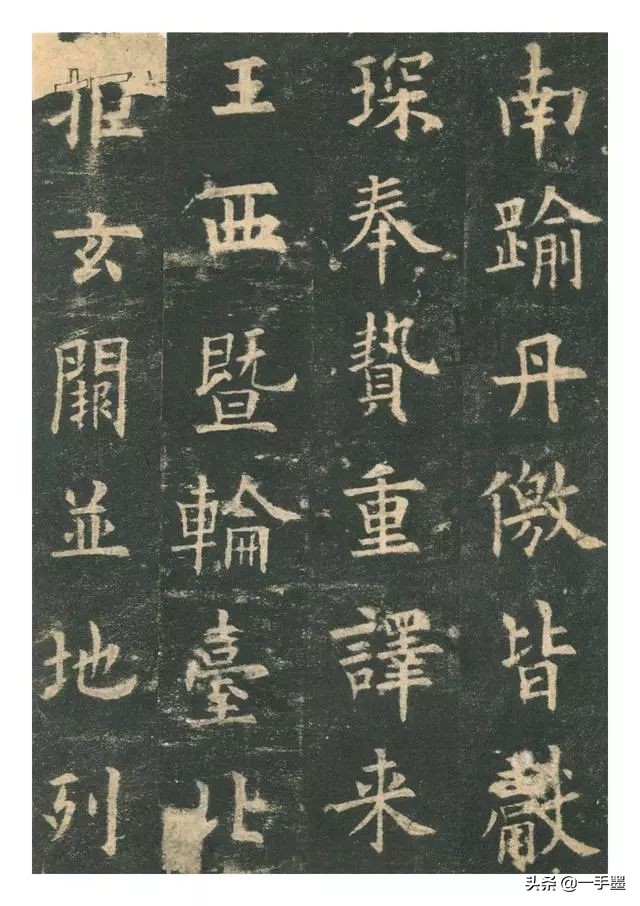 南踰丹儌皆獻
琛奉贄重譯来
王西暨輪臺北
拒玄闕並地列
头条 @一手墨